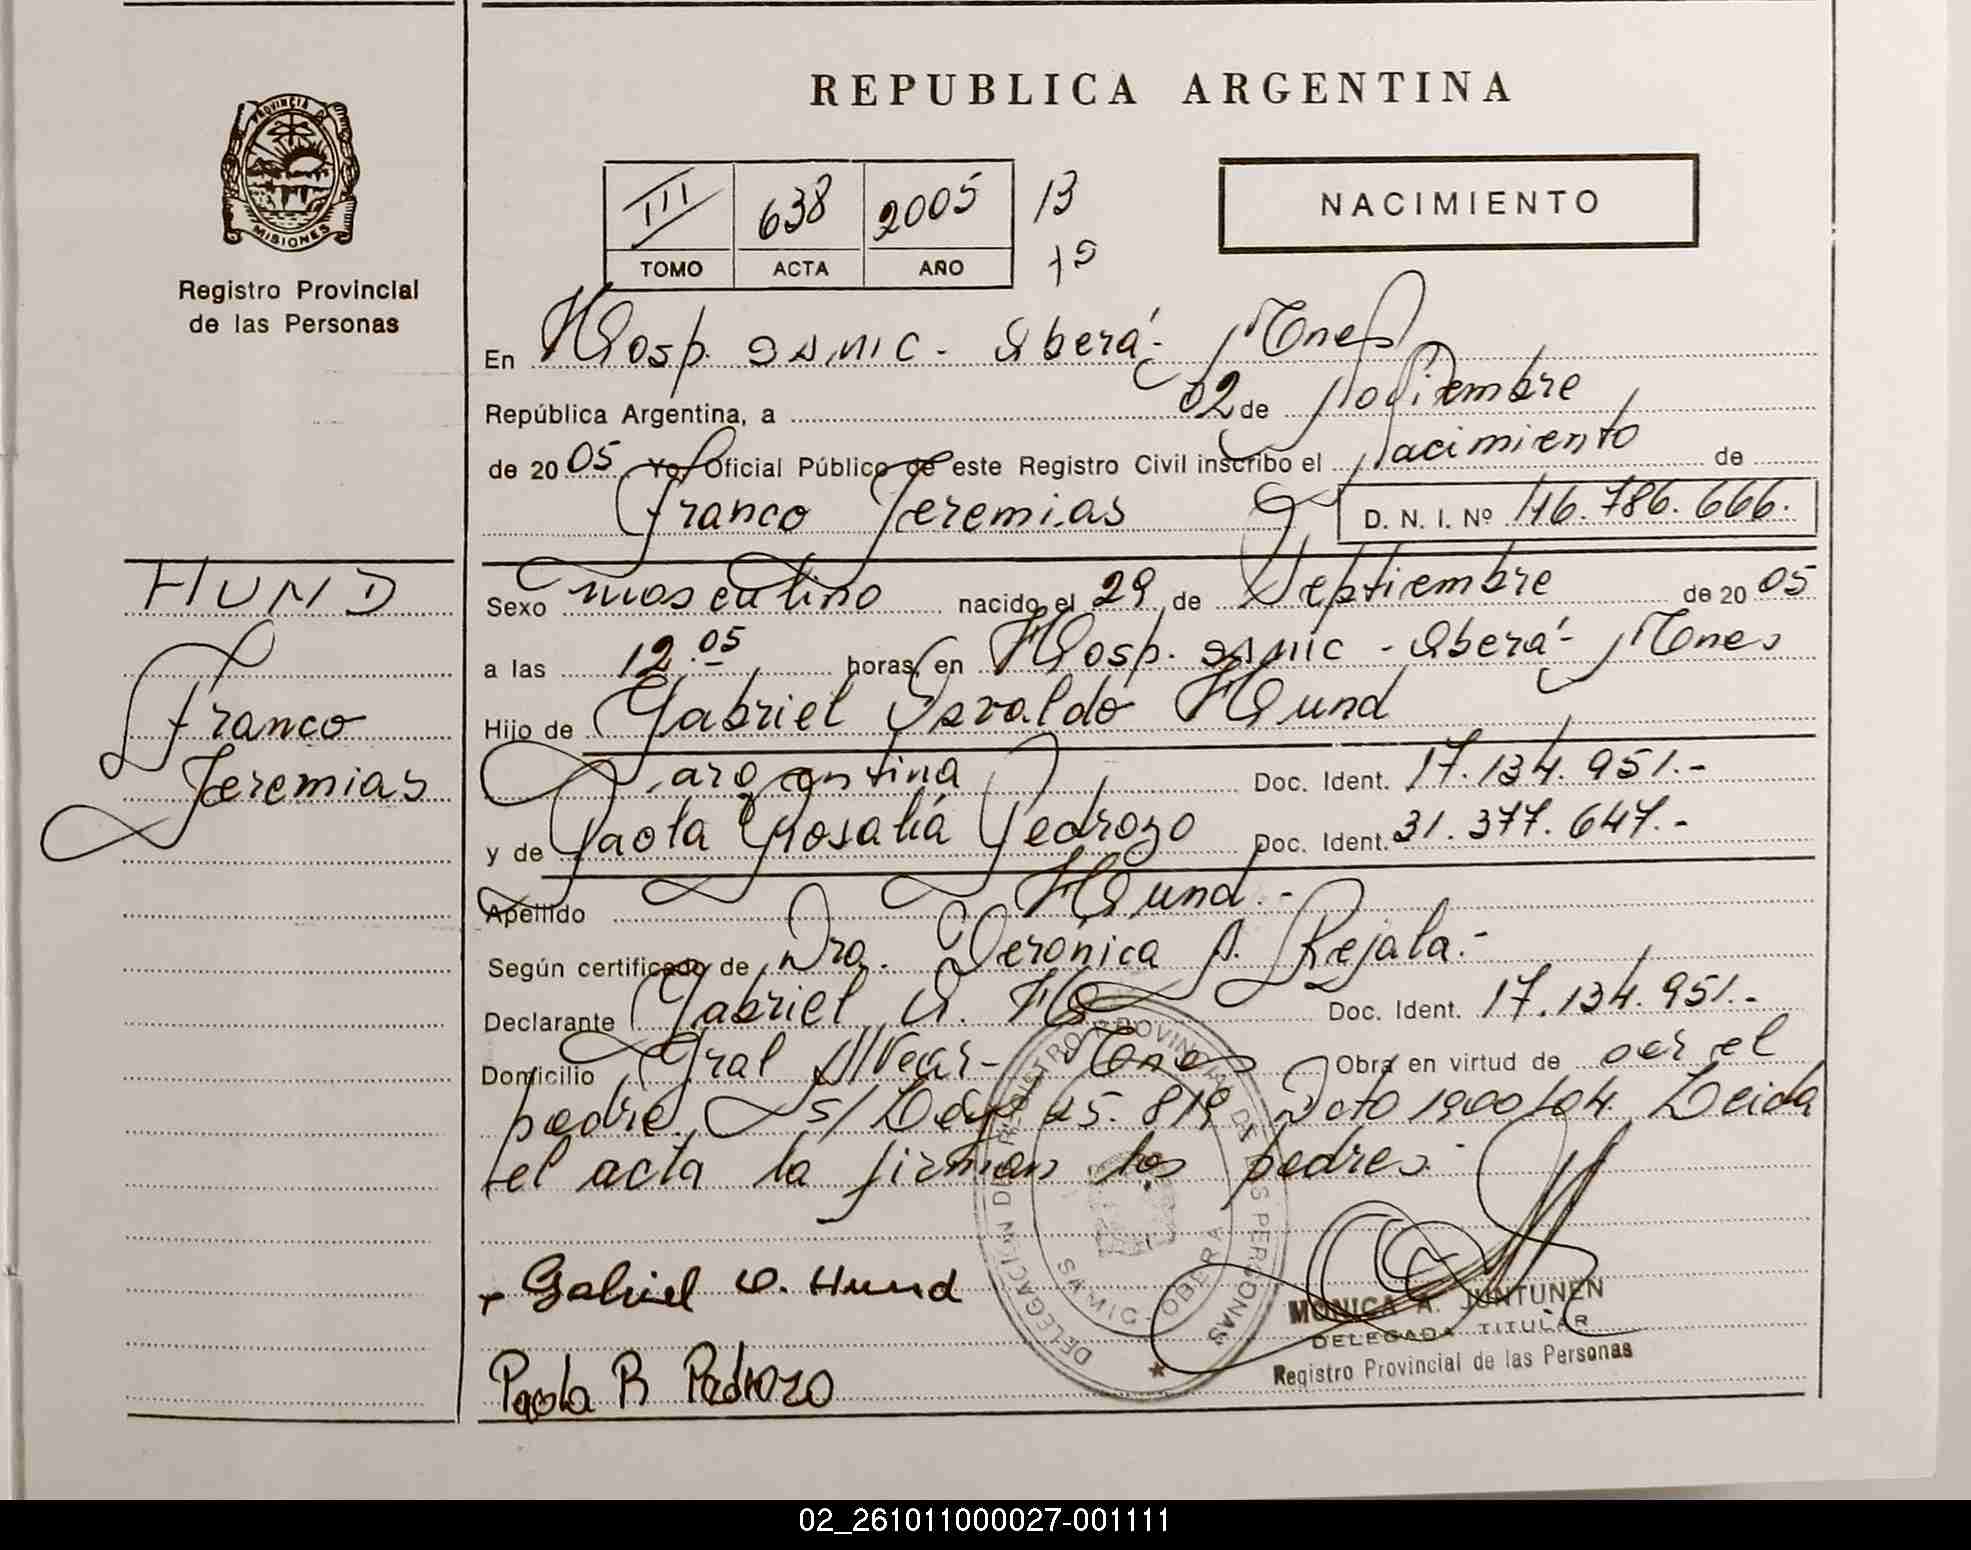 REPUBLICA ARGENTINA
PROVINCIA D
MISIONES
Registro Provincial
de las Personas
III 638 2005 13
TOMO ACTA AÑO
NACIMIENTO
En Hosp. SAMIC - Oberá - Mnes
República Argentina, a 02 de Noviembre
de 2005 Yo, Oficial Público de este Registro Civil inscribo el Nacimiento de
Franco Jeremias D. N. I. Nº 46.786.666.
HUND
Franco
Jeremias
Sexo masculino nacido el 29 de Septiembre de 2005
a las 12.05 horas, en Hosp. SAMIC - Oberá - Mnes
Hijo de Gabriel Osvaldo Hund
argentina Doc. Ident. 17.134.951.-
y de Paola Rosalia Pedrozo Doc. Ident. 31.377.647.-
Apellido Hund.-
Según certificado de Dra. Verónica A. Rejala.-
Declarante Gabriel O. H Doc. Ident. 17.134.951.-
Domicilio Gral Alvear - Mnes Obra en virtud de ser el
padre. S/ Ley 25.819 Dcto 1900/04. Leida
el acta la firman los padres.-
Gabriel O. Hund
Paola R Pedrozo
DELEGACIÓN DEL REGISTRO PROVINCIAL DE LAS PERSONAS
SAMIC - OBERA
MONICA A. JUNTUNEN
DELEGADA TITULAR
Registro Provincial de las Personas
02_261011000027-001111